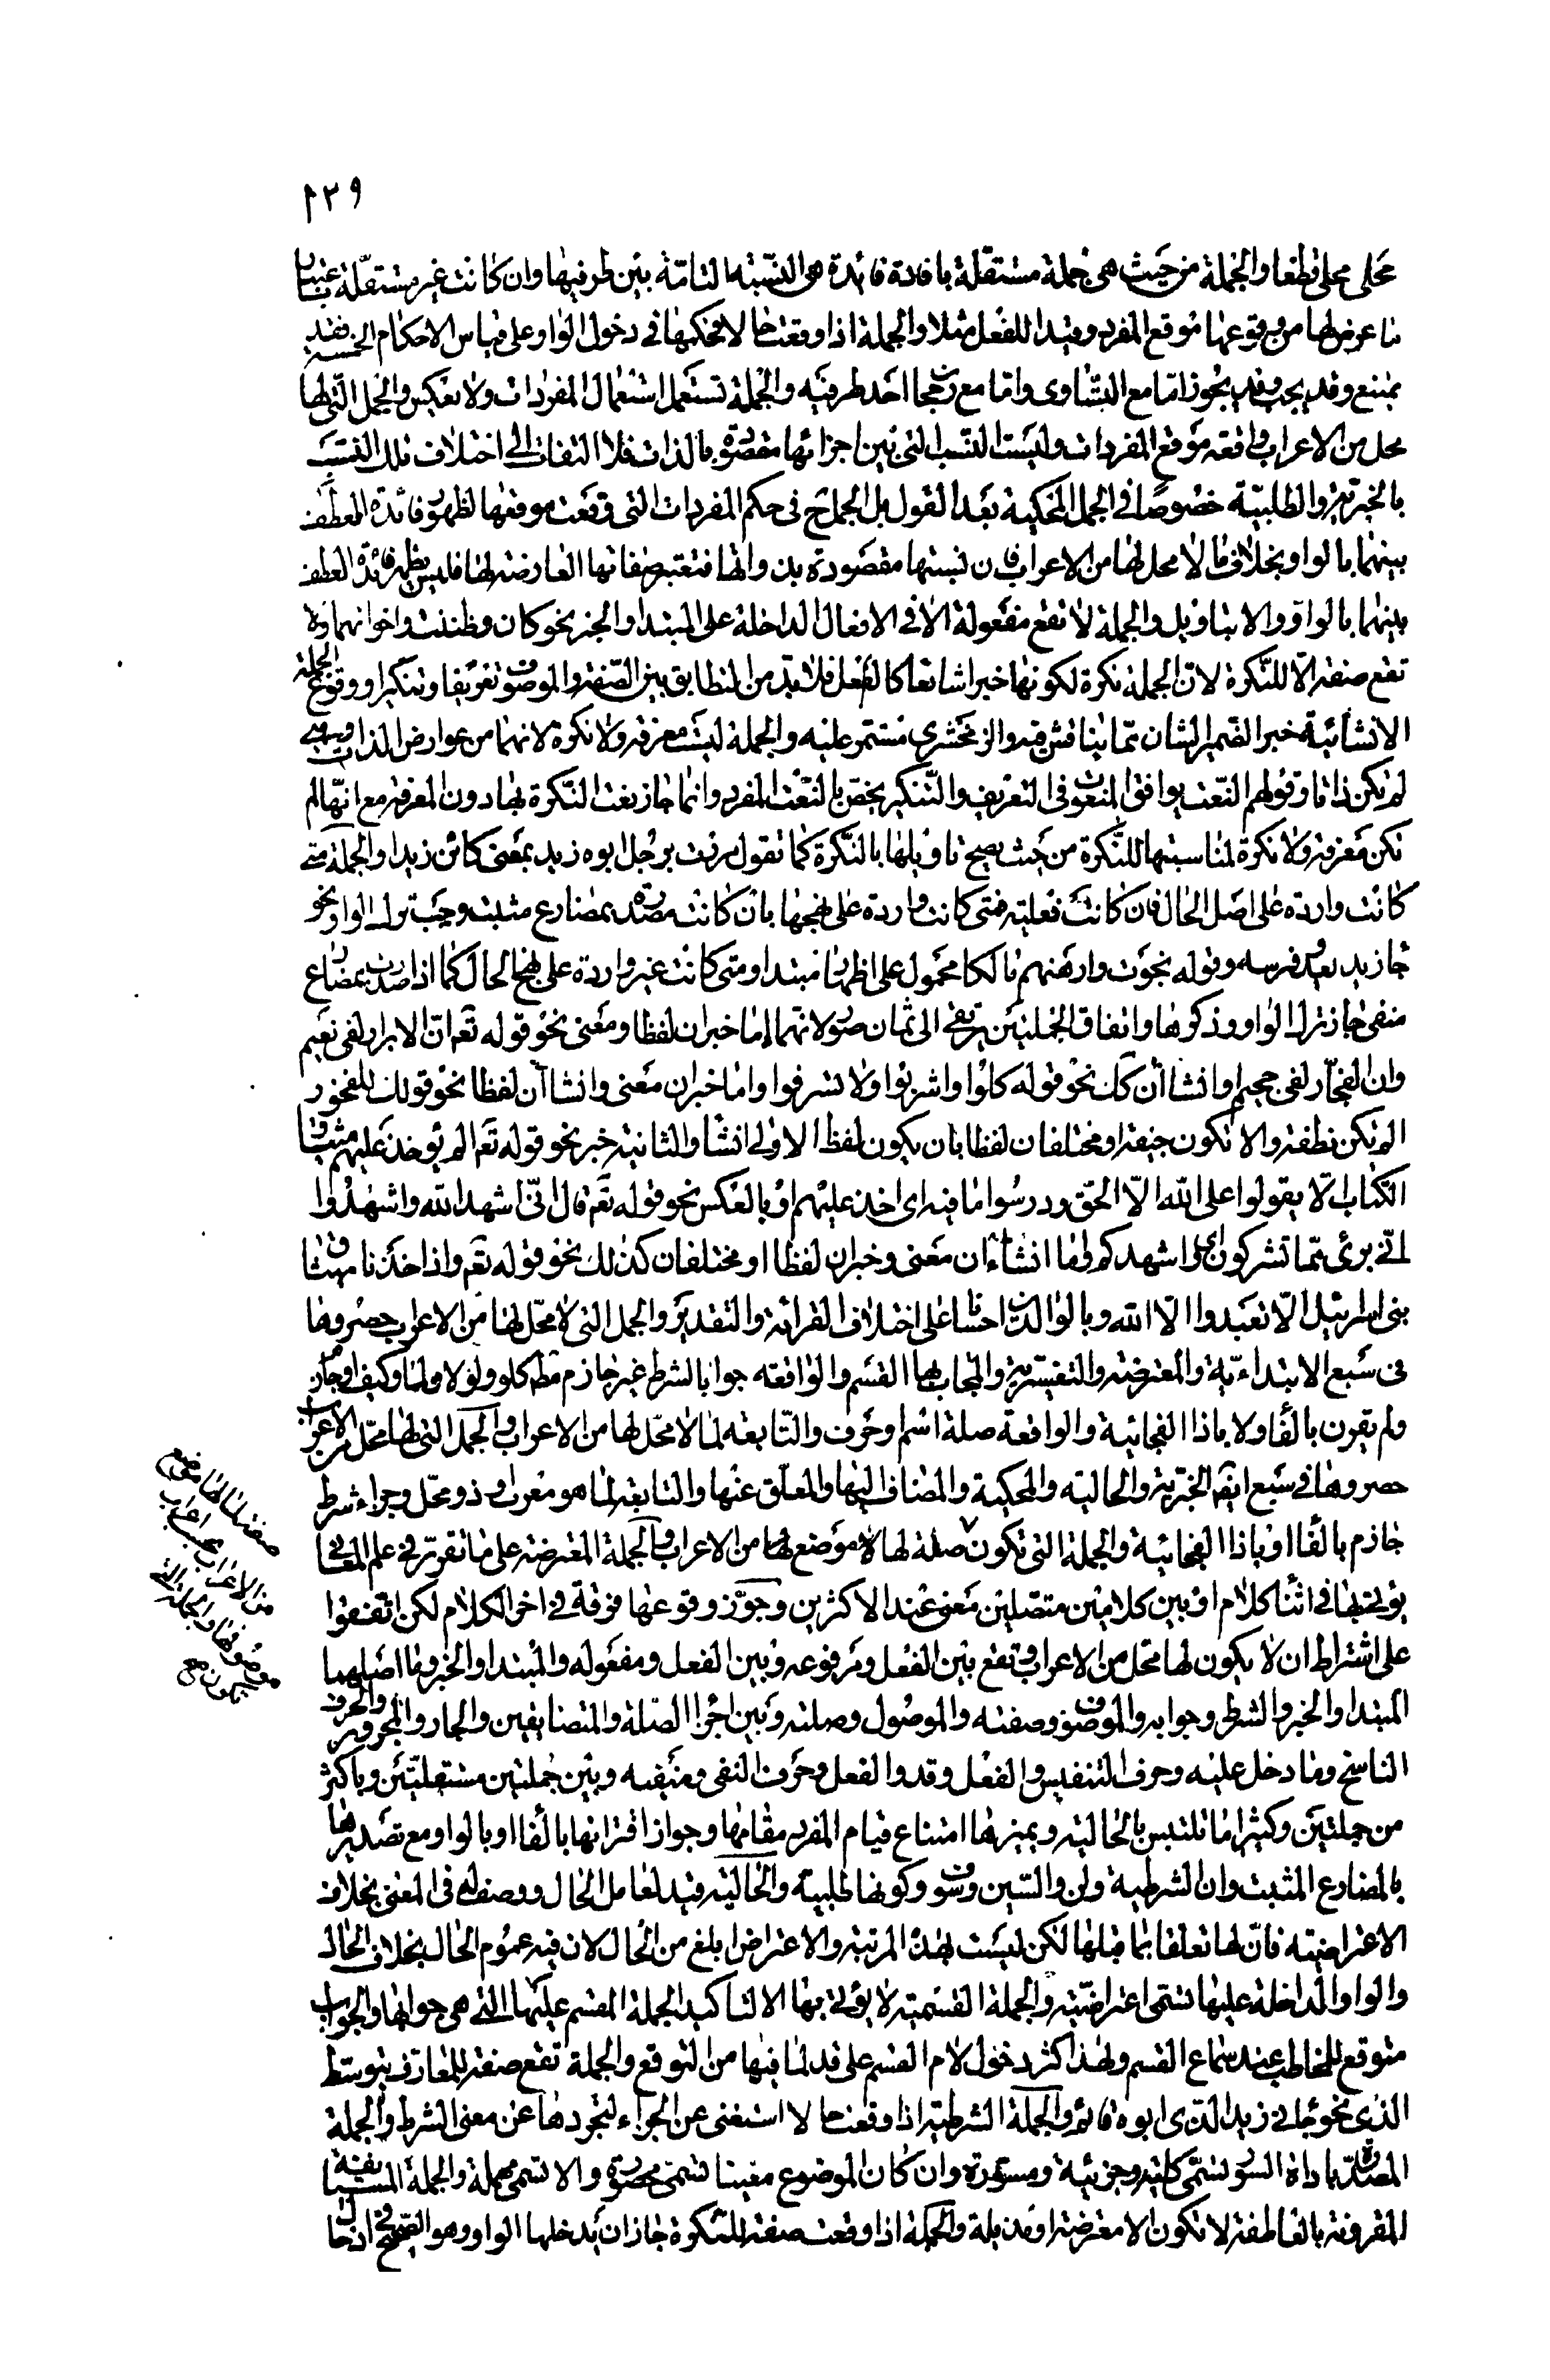 ١٢٩
محلى محلى قطعا والجملة من حيث هى جملة مستقلة بافادة فائدة هى النسبة التامة بين طرفيها وان كانت غير مستقلة باعتبار
ما عرض لها من وقوعها موقع المفرد وقيدا للفعل مثلا والجملة اذا وقعت حالا فحكمها فى دخول الواو على قياس الاحكام الخمسة فقد
يمتنع وقد يجب وقد يجوز اما مع التساوى واما مع رجحان احد طرفيه والجملة تستعمل استعمال المفردات ولا بعكس والجمل التى لها
محل من الاعراب واقعة موقع المفردات وليست النسب التى بين اجزائها مقصودة بالذات فلا التفات الى اختلاف تلك النسب
بالخبرية والطلبية خصوصا فى الجمل المحكية بعد القول بل الجمل ح فى حكم المفردات التى وقعت موقعها لظهور فائدة العطف
بينهما بالواو بخلاف ما لا محل لها من الاعراب فان نسبتها مقصودة بذواتها فتعتبر صفاتها العارضة لها فليس يظهر فائدة العطف
بينهما بالواو والا بتاويل والجملة لا تقع مفعولة الا فى الافعال الداخلة على المبتدا والخبر نحو كان وظننت واخواتهما ولا
تقع صفة الا للنكرة لان الجملة نكرة لكونها خبرا شائعا كالفعل فلا بد من التطابق بين الصفة والموصوف تعريفا وتنكيرا ووقوع الجملة
الانشائية خبرا لضمير الشان مما يناقش فيه والزمخشرى مستمر عليه والجملة ليست معرفة ولا نكرة لانهما من عوارض الذات وهى
لم تكن ذاتا وقولهم النعت يوافق المنعوت فى التعريف والتنكير يخص بالنعت المفرد وانما جاز نعت النكرة بها دون المعرفة مع انها لم
تكن معرفة ولا نكرة لمناسبتها للنكرة من حيث يصح تاويلها بالنكرة كما تقول مررت برجل ابوه زيد بمعنى كائن زيدا والجملة متى
كانت واردة على اصل الحال فان كانت فعلية فمتى كانت واردة على نهجها بان كانت مصدرة بمضارع مثبت وجب ترك الواو نحو
جا زيد يعدو فرسه وقوله نجوت وارهنهم مالكا محمول على اظهار مبتدا ومتى كانت غير واردة على نهج الحال كما اذا صدرت بمضارع
منفى جاز ترك الواو وذكرها واتفاق الجملتين يرتقى الى ثمان صور لانهما اما خبران لفظا ومعنى نحو قوله تعم ان الابرار لفى نعيم
وان الفجار لفى جحيم او انشاآن كك نحو قوله كلوا واشربوا ولا تسرفوا واما خبران معنى وانشاآن لفظا نحو قولك للفخور
الم تكن نطفة والا تكون جيفة او مختلفان لفظا بان يكون لفظ الاولى انشا والثانية خبر نحو قوله تعم الم يؤخذ عليهم ميثاق
الكتاب الا يقولوا على الله الا الحق ودرسوا ما فيه اى اخذ عليهم او بالعكس نحو قوله تعم قال انى اشهد الله واشهدوا
انى برئ مما تشركون اى واشهدكم واما انشاءان معنى وخبران لفظا او مختلفان كذلك نحو قوله تعم واذ اخذنا ميثاق
بنى اسرئيل الا تعبدوا الا الله وبالوالدين احسانا على اختلاف القرائة والتقدير والجمل التى لا محل لها من الاعراب حصروها
فى سبع الابتداءية والمعترضة والتفسيرية والمجاب بها القسم والواقعة جوابا لشرط غير جازم مط كلو ولولا ولما وكيف او جازم
ولم يقرن بالفا ولا باذا الفجائية والواقعة صلة اسم او حرف والتابعة لما لا محل لها من الاعراب والجمل التى لها محل من الاعراب
حصروها فى سبع ايضا الخبرية والحالية والمحكية والمضاف اليها والمعلق عنها والتابعة لما هو معرب او ذو محل وجزاء شرط
جازم بالفا او باذا الفجائية والجملة التى تكون صلة لها لا موضع لها من الاعراب والجملة المعترضة على ما تقرر فى علم المعانى
يؤتى بها فى اثنا كلام او بين كلامين متصلين معنى عند الاكثرين وجوز وقوعها فرقة فى اخر الكلام لكن اتفقوا
على اشتراط ان لا يكون لها محل من الاعراب وتقع بين الفعل ومرفوعه وبين الفعل ومفعوله والمبتدا والخبر وما اصلهما
المبتدا والخبر والشرط وجوابه والموصوف وصفته والموصول وصلته وبين اجزا الصلة والمتضايفين والجار والمجرور والحرف
الناسخ وما دخل عليه وحرف التنفيس والفعل وقد والفعل وحرف النفى ومنفيه وبين جملتين مستقلتين وباكثر
من جملتين وكثيرا ما تلتبس بالحالية ويميزها امتناع قيام المفرد مقامها وجواز اقترانها بالفا او بالواو مع تصديرها
بالمضارع المثبت وان الشرطية ولن والسين وسوف وكونها طلبية والحالية قيد لعامل الحال ووصف له فى المعنى بخلاف
الاعتراضية فان لها تعلقا بما قبلها لكن ليست بهذه المرتبة والاعتراض ابلغ من الحال لان فيه عموم الحال بخلاف الحال
والواو الداخلة عليها تسمى اعتراضية والجملة القسمية لا يؤتى بها الا لتاكيد الجملة المقسم عليها التى هى جوابها والجواب
متوقع للمخاطب عند سماع القسم ولهذا كثر دخول لام القسم على قد لما فيها من التوقع والجملة تقع صفة للمعارف بتوسط
الذى نحو جانى زيد الذى ابوه قائم والجملة الشرطية اذا وقعت حالا استغنى عن الجزاء لتجردها عن معنى الشرط والجملة
المصدرة باداة السور تسمى كلية وجزئية ومسورة وان كان الموضوع معينا تسمى مخصوصة والا تسمى مهملة والجملة المستانفة
المقرونة بالعاطفة لا تكون الا معترضة او مذيلة والجملة اذا وقعت صفة للنكرة جاز ان يدخلها الواو وهو الصحيح فى ادخال
صفة لما لها موضع
من الاعراب بحسب اعراب
موصوفها والجملة التى
تكون صح